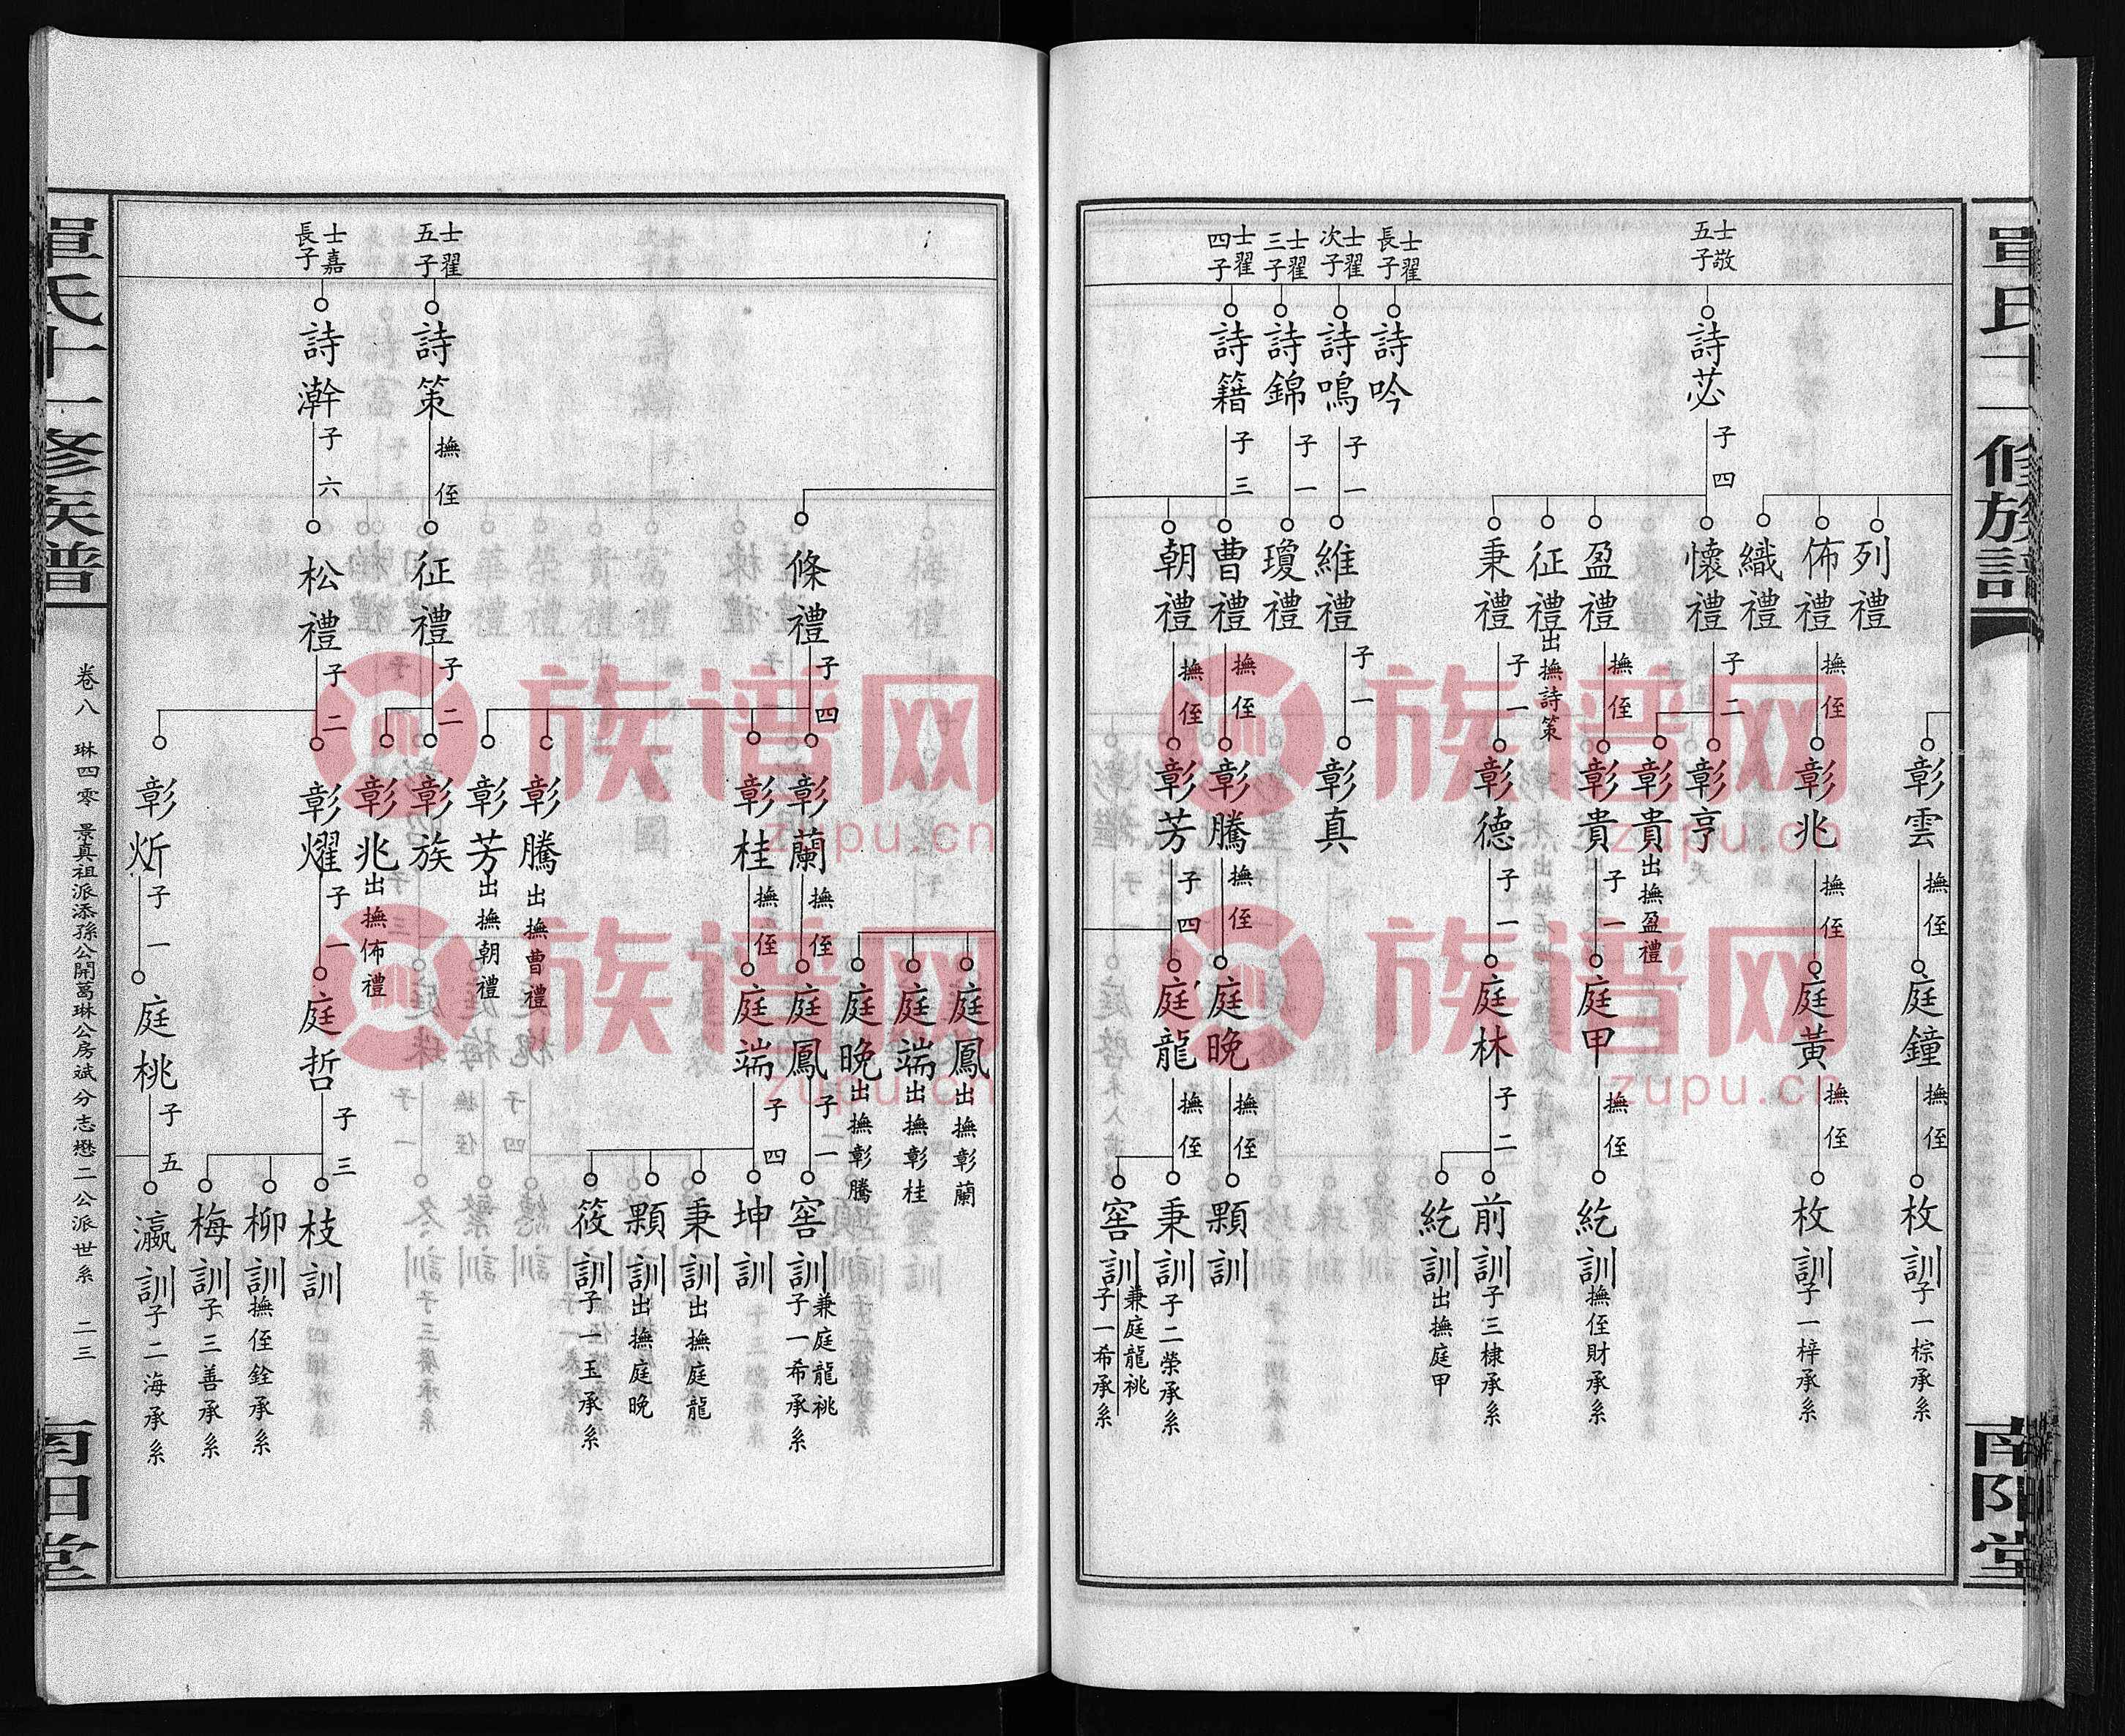 單氏十一修族譜
南陽堂
士敬
五子
詩苾
子四
士翟
長子
詩吟
士翟
次子
詩鳴
子一
士翟
三子
詩錦
子一
士翟
四子
詩籍
子三
列禮
佈禮
撫侄
織禮
懷禮
子二
盈禮
撫侄
征禮
出撫詩策
秉禮
子一
維禮
子一
瓊禮
曹禮
撫侄
朝禮
撫侄
彰雲
撫侄
彰兆
撫侄
彰亨
彰貴
出撫盈禮
彰貴
子一
彰德
子一
彰真
彰騰
撫侄
彰芳
子四
庭鐘
撫侄
庭黃
撫侄
庭甲
撫侄
庭林
子二
庭晚
撫侄
庭龍
撫侄
枚訓
子一棕承系
枚訓
子一梓承系
紇訓
撫侄財承系
前訓
子三棣承系
紇訓
出撫庭甲
顆訓
秉訓
子二榮承系
窖訓
兼庭龍祧
子一希承系
士翟
五子
詩策
撫侄
士嘉
長子
詩澣
子六
條禮
子四
征禮
子二
松禮
子二
彰蘭
撫侄
彰桂
撫侄
彰騰
出撫曹禮
彰芳
出撫朝禮
彰族
彰兆
出撫佈禮
彰燿
子一
彰炘
子一
庭鳳
出撫彰蘭
庭端
出撫彰桂
庭晚
出撫彰騰
庭鳳
子一
庭端
子四
庭哲
子三
庭桃
子五
窖訓
兼庭龍祧
子一希承系
坤訓
秉訓
出撫庭龍
顆訓
出撫庭晚
筱訓
子一玉承系
枝訓
柳訓
撫侄銓承系
梅訓
子三善承系
瀛訓
子二海承系
單氏十一修族譜
卷八 琳四零 景真祖派添孫公開葛琳公房斌分志懋二公派世系 二三
南陽堂
族谱网
zupu.cn
族谱网
zupu.cn
族谱网
zupu.cn
族谱网
zupu.cn